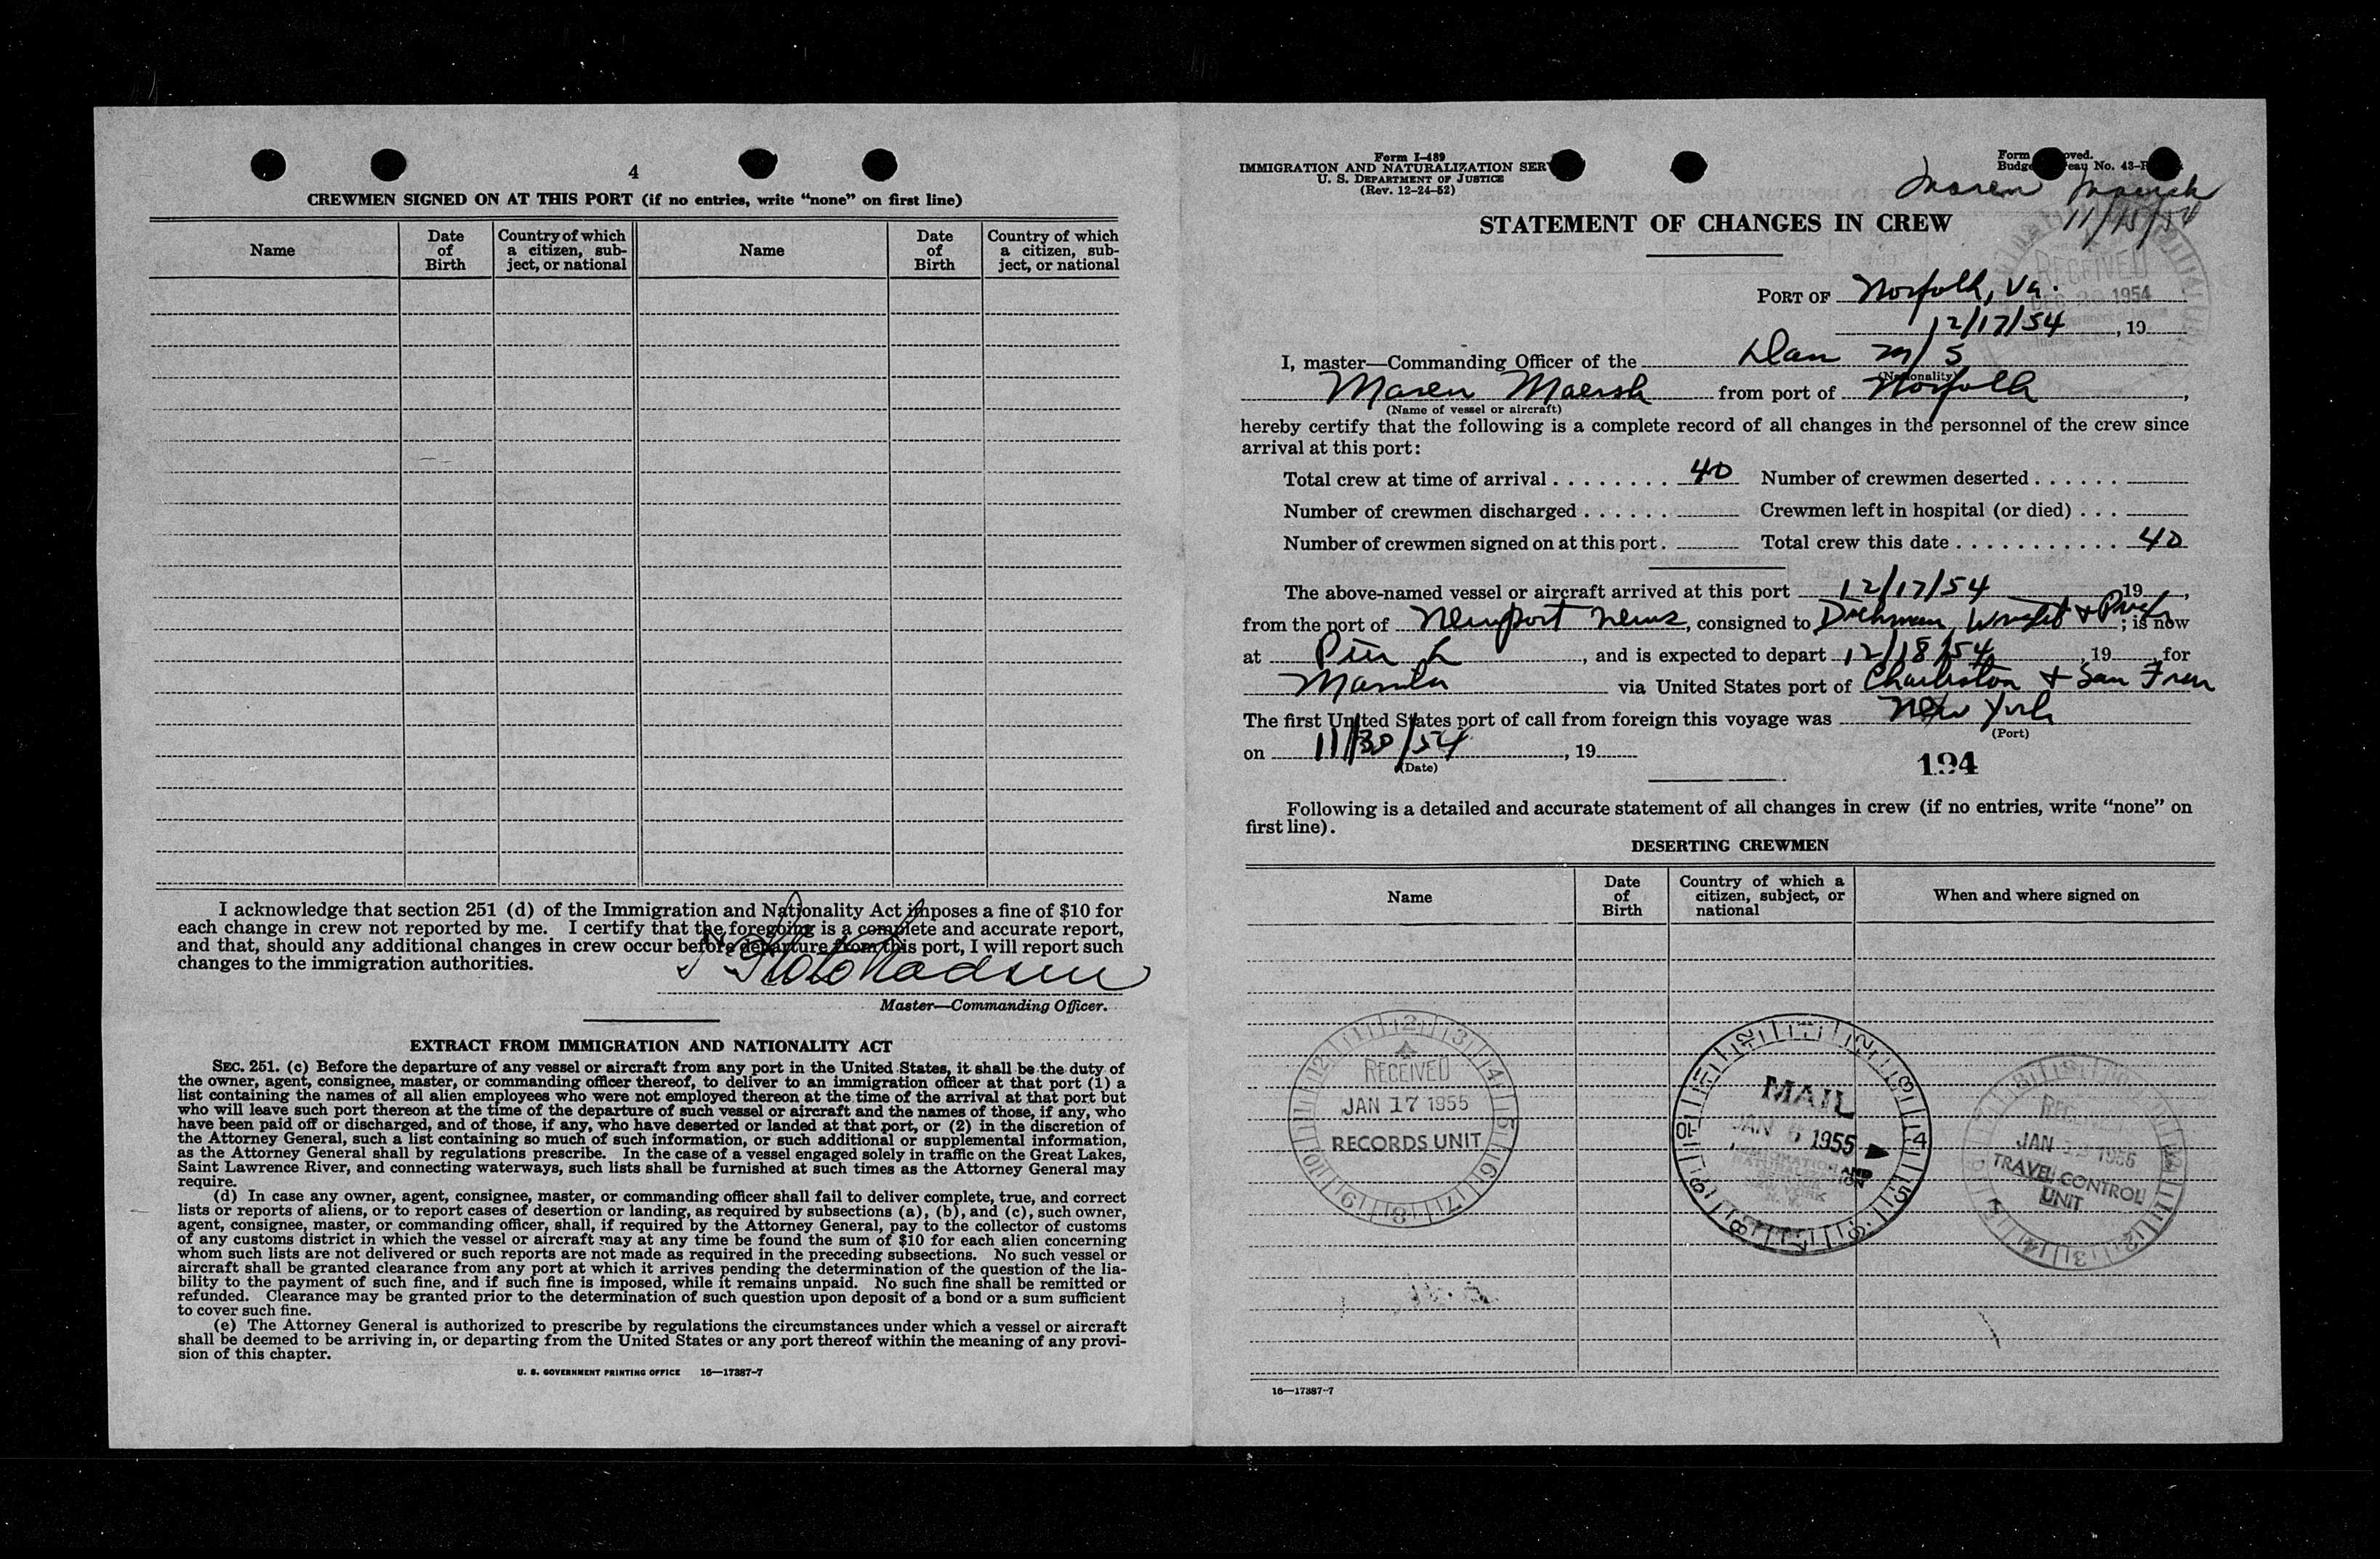 4
CREWMEN SIGNED ON AT THIS PORT (if no entries, write “none” on first line)
Name
Date of Birth
Country of which a citizen, sub-ject, or national
Name
Date of Birth
Country of which a citizen, sub-ject, or national
I acknowledge that section 251 (d) of the Immigration and Nationality Act imposes a fine of $10 for
each change in crew not reported by me. I certify that the foregoing is a complete and accurate report,
and that, should any additional changes in crew occur before departure from this port, I will report such
changes to the immigration authorities.
Master—Commanding Officer.
EXTRACT FROM IMMIGRATION AND NATIONALITY ACT
SEC. 251. (c) Before the departure of any vessel or aircraft from any port in the United States, it shall be the duty of
the owner, agent, consignee, master, or commanding officer thereof, to deliver to an immigration officer at that port (1) a
list containing the names of all alien employees who were not employed thereon at the time of the arrival at that port but
who will leave such port thereon at the time of the departure of such vessel or aircraft and the names of those, if any, who
have been paid off or discharged, and of those, if any, who have deserted or landed at that port, or (2) in the discretion of
the Attorney General, such a list containing so much of such information, or such additional or supplemental information,
as the Attorney General shall by regulations prescribe. In the case of a vessel engaged solely in traffic on the Great Lakes,
Saint Lawrence River, and connecting waterways, such lists shall be furnished at such times as the Attorney General may
require.
(d) In case any owner, agent, consignee, master, or commanding officer shall fail to deliver complete, true, and correct
lists or reports of aliens, or to report cases of desertion or landing, as required by subsections (a), (b), and (c), such owner,
agent, consignee, master, or commanding officer, shall, if required by the Attorney General, pay to the collector of customs
of any customs district in which the vessel or aircraft may at any time be found the sum of $10 for each alien concerning
whom such lists are not delivered or such reports are not made as required in the preceding subsections. No such vessel or
aircraft shall be granted clearance from any port at which it arrives pending the determination of the question of the lia-
bility to the payment of such fine, and if such fine is imposed, while it remains unpaid. No such fine shall be remitted or
refunded. Clearance may be granted prior to the determination of such question upon deposit of a bond or a sum sufficient
to cover such fine.
(e) The Attorney General is authorized to prescribe by regulations the circumstances under which a vessel or aircraft
shall be deemed to be arriving in, or departing from the United States or any port thereof within the meaning of any provi-
sion of this chapter.
U. S. GOVERNMENT PRINTING OFFICE 16—17387-7
Form I-489
IMMIGRATION AND NATURALIZATION SER
U. S. DEPARTMENT OF JUSTICE
(Rev. 12-24-52)
Form
Budge No. 43-R
Maren Maersk
STATEMENT OF CHANGES IN CREW
RECEIVED
1954
PORT OF Norfolk, Va.
12/17/54, 19
I, master—Commanding Officer of the Dan M/S
(Nationality)
Maren Maersk from port of Norfolk,
(Name of vessel or aircraft)
hereby certify that the following is a complete record of all changes in the personnel of the crew since
arrival at this port:
Total crew at time of arrival 40 Number of crewmen deserted
Number of crewmen discharged Crewmen left in hospital (or died)
Number of crewmen signed on at this port. Total crew this date 40
The above-named vessel or aircraft arrived at this port 12/17/54 19,
from the port of Newport News, consigned to Dichman, Wright & Pugh; is now
at Pier L, and is expected to depart 12/18/54, 19 for
Manila via United States port of Charleston + San Fran
The first United States port of call from foreign this voyage was New York
(Port)
on 11/30/54, 19
(Date)
194
Following is a detailed and accurate statement of all changes in crew (if no entries, write “none” on
first line).
DESERTING CREWMEN
Name
Date of Birth
Country of which a citizen, subject, or national
When and where signed on
RECEIVED
JAN 17 1955
RECORDS UNIT
MAIL
1955
JAN 1955
TRAVEL CONTROL
UNIT
16—17387-7